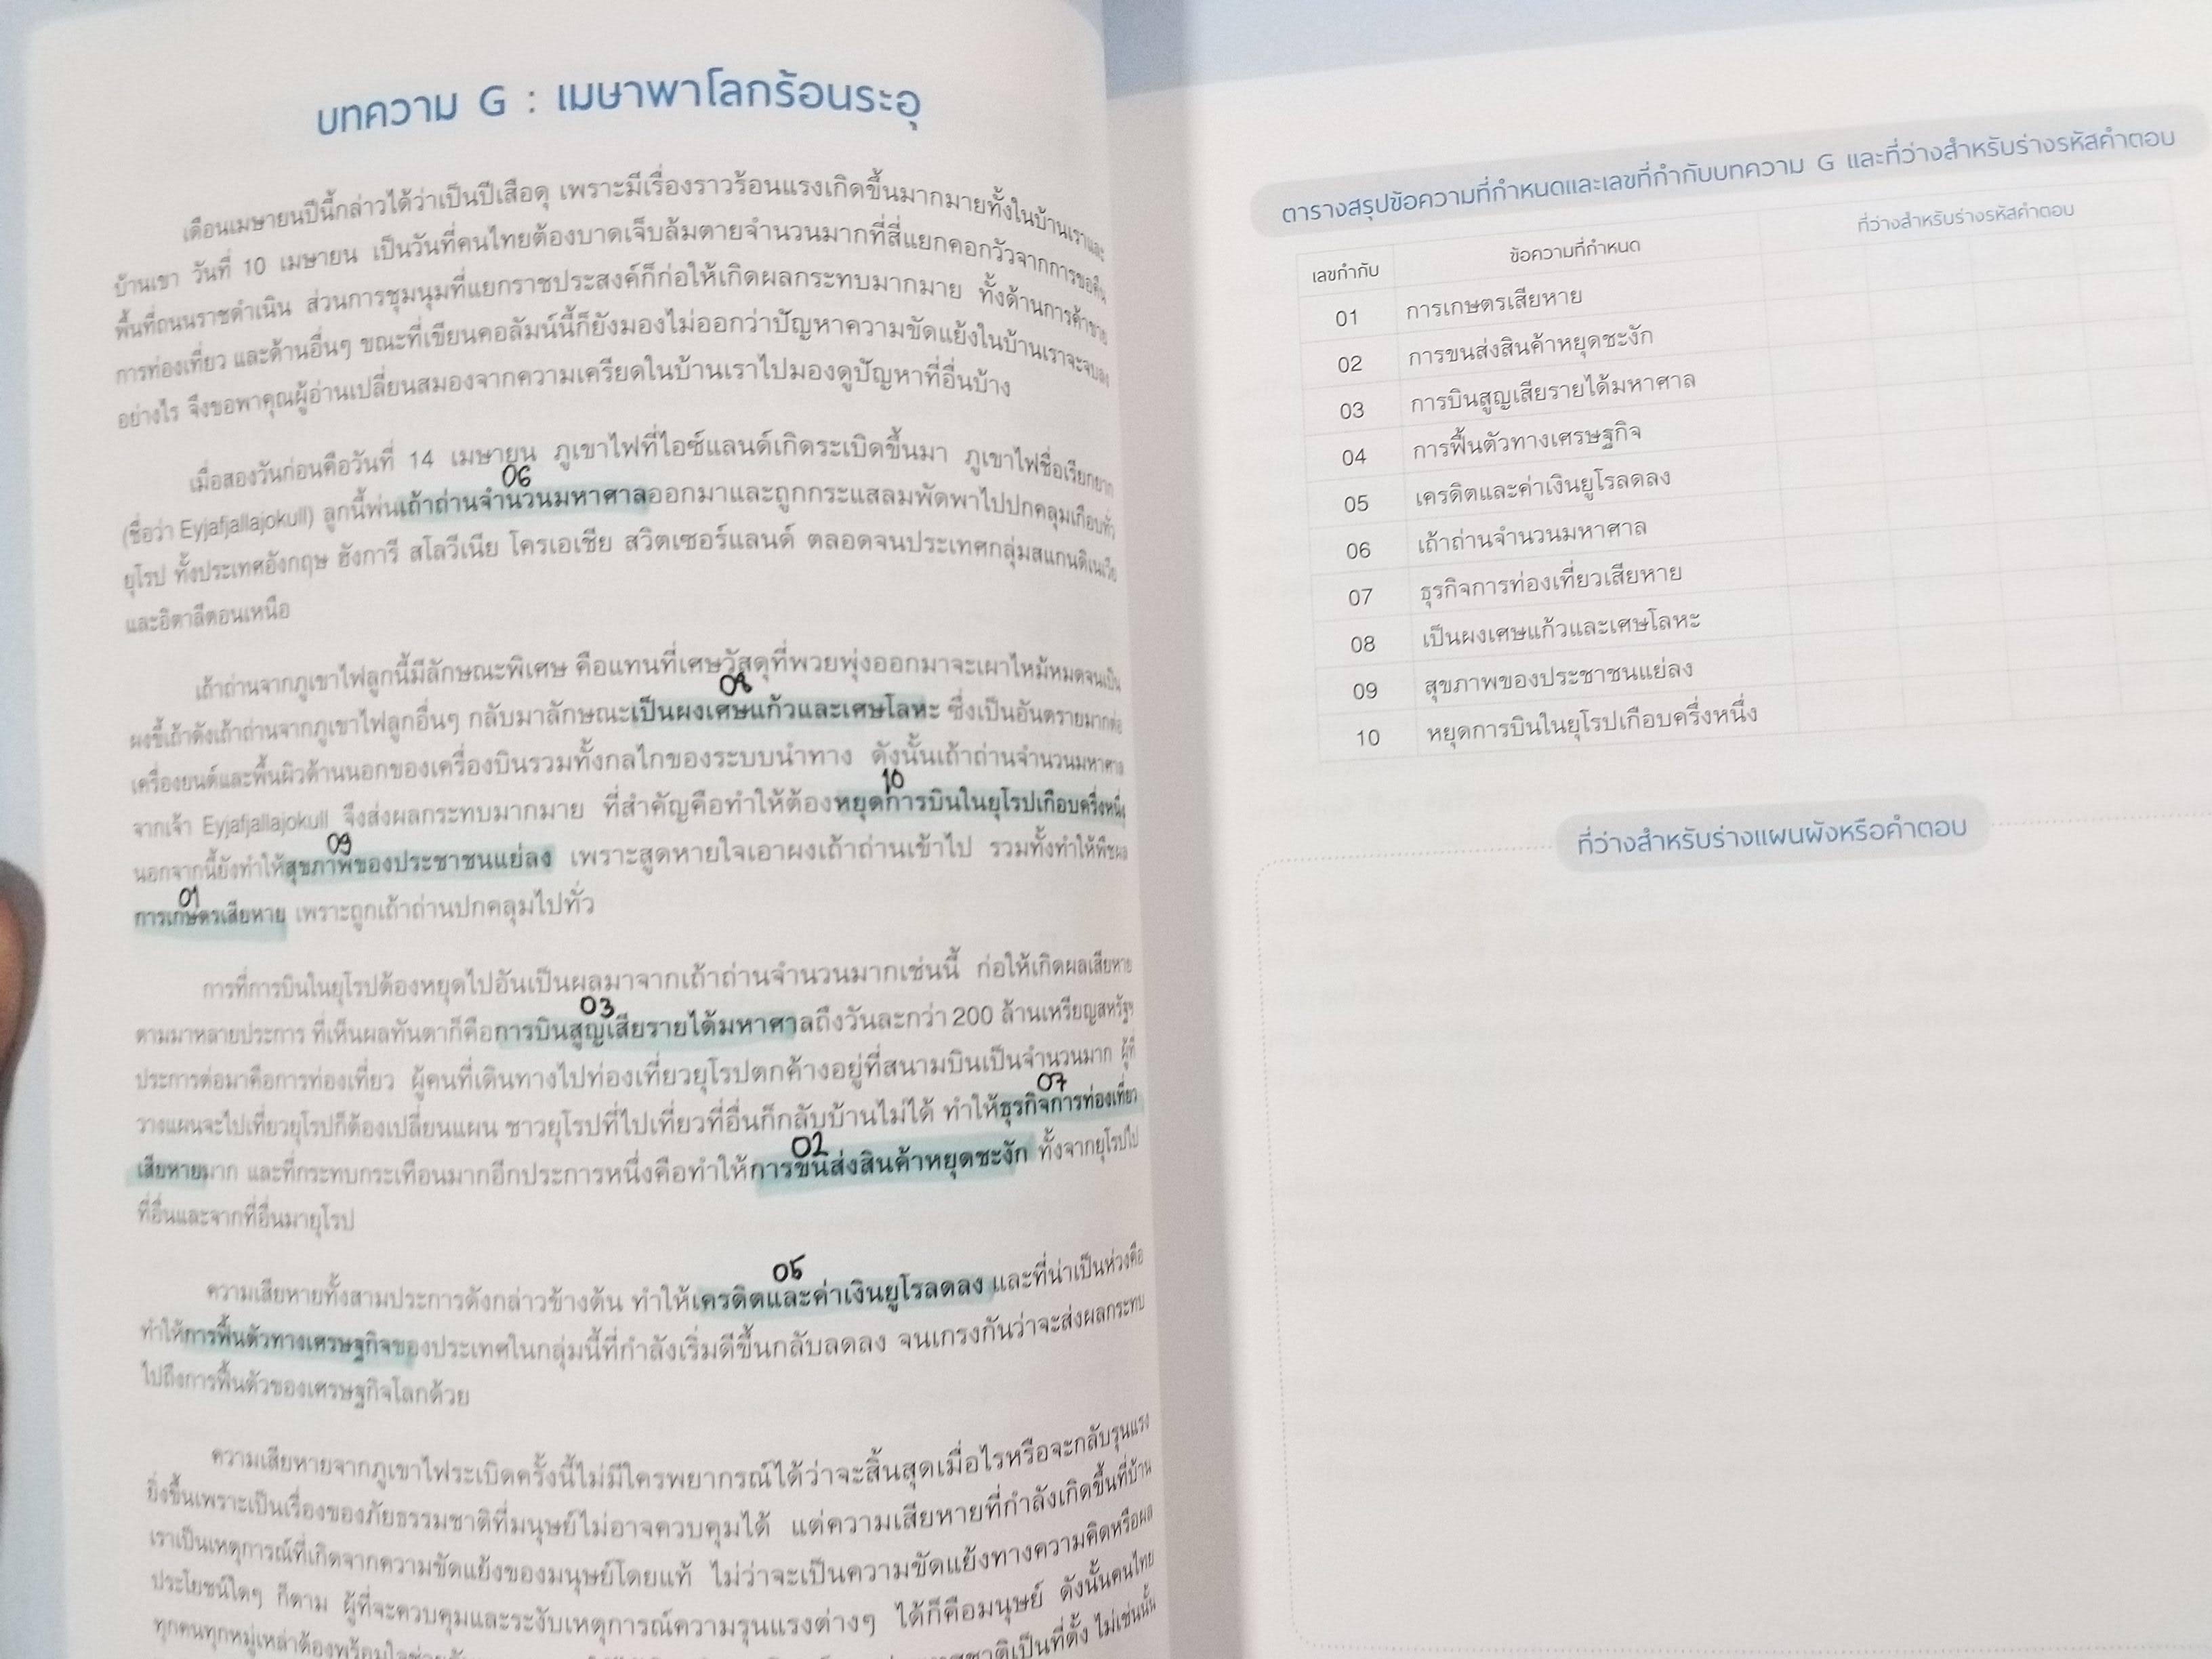 บทความ G : เมษาพาโลกร้อนระอุ
เดือนเมษายนปีนี้กล่าวได้ว่าเป็นปีเสือดุ เพราะมีเรื่องราวร้อนแรงเกิดขึ้นมากมายทั้งในบ้านเราและ
บ้านเขา วันที่ 10 เมษายน เป็นวันที่คนไทยต้องบาดเจ็บล้มตายจำนวนมากที่สี่แยกคอกวัวจากการขอคืน
พื้นที่ถนนราชดำเนิน ส่วนการชุมนุมที่แยกราชประสงค์ก็ก่อให้เกิดผลกระทบมากมาย ทั้งด้านการค้าขาย
การท่องเที่ยว และด้านอื่นๆ ขณะที่เขียนคอลัมน์นี้ก็ยังมองไม่ออกว่าปัญหาความขัดแย้งในบ้านเราจะจบลง
อย่างไร จึงขอพาคุณผู้อ่านเปลี่ยนสมองจากความเครียดในบ้านเราไปมองดูปัญหาที่อื่นบ้าง
เมื่อสองวันก่อนคือวันที่ 14 เมษายน ภูเขาไฟที่ไอซ์แลนด์เกิดระเบิดขึ้นมา ภูเขาไฟชื่อเรียกยาก
06
(ชื่อว่า Eyjafjallajokull) ลูกนี้พ่นเถ้าถ่านจำนวนมหาศาลออกมาและถูกกระแสลมพัดพาไปปกคลุมเกือบทั่ว
ยุโรป ทั้งประเทศอังกฤษ ฮังการี สโลวีเนีย โครเอเชีย สวิตเซอร์แลนด์ ตลอดจนประเทศกลุ่มสแกนดิเนเวีย
และอิตาลีตอนเหนือ
เถ้าถ่านจากภูเขาไฟลูกนี้มีลักษณะพิเศษ คือแทนที่เศษวัสดุที่พวยพุ่งออกมาจะเผาไหม้หมดจนเป็น
08
ผงขี้เถ้าดังเถ้าถ่านจากภูเขาไฟลูกอื่นๆ กลับมาลักษณะเป็นผงเศษแก้วและเศษโลหะ ซึ่งเป็นอันตรายมากต่อ
เครื่องยนต์และพื้นผิวด้านนอกของเครื่องบินรวมทั้งกลไกของระบบนำทาง ดังนั้นเถ้าถ่านจำนวนมหาศาล
10
จากเจ้า Eyjafjallajokull จึงส่งผลกระทบมากมาย ที่สำคัญคือทำให้ต้องหยุดการบินในยุโรปเกือบครึ่งหนึ่ง
09
นอกจากนี้ยังทำให้สุขภาพของประชาชนแย่ลง เพราะสูดหายใจเอาผงเถ้าถ่านเข้าไป รวมทั้งทำให้พืชผล
01
การเกษตรเสียหาย เพราะถูกเถ้าถ่านปกคลุมไปทั่ว
การที่การบินในยุโรปต้องหยุดไปอันเป็นผลมาจากเถ้าถ่านจำนวนมากเช่นนี้ ก่อให้เกิดผลเสียหาย
03
ตามมาหลายประการ ที่เห็นผลทันตาก็คือการบินสูญเสียรายได้มหาศาลถึงวันละกว่า 200 ล้านเหรียญสหรัฐฯ
ประการต่อมาคือการท่องเที่ยว ผู้คนที่เดินทางไปท่องเที่ยวยุโรปตกค้างอยู่ที่สนามบินเป็นจำนวนมาก ผู้ที่
07
วางแผนจะไปเที่ยวยุโรปก็ต้องเปลี่ยนแผน ชาวยุโรปที่ไปเที่ยวที่อื่นก็กลับบ้านไม่ได้ ทำให้ธุรกิจการท่องเที่ยว
02
เสียหายมาก และที่กระทบกระเทือนมากอีกประการหนึ่งคือทำให้การขนส่งสินค้าหยุดชะงัก ทั้งจากยุโรปไป
ที่อื่นและจากที่อื่นมายุโรป
05
ความเสียหายทั้งสามประการดังกล่าวข้างต้น ทำให้เครดิตและค่าเงินยูโรลดลง และที่น่าเป็นห่วงคือ
ทำให้การฟื้นตัวทางเศรษฐกิจของประเทศในกลุ่มนี้ที่กำลังเริ่มดีขึ้นกลับลดลง จนเกรงกันว่าจะส่งผลกระทบ
ไปถึงการฟื้นตัวของเศรษฐกิจโลกด้วย
ความเสียหายจากภูเขาไฟระเบิดครั้งนี้ไม่มีใครพยากรณ์ได้ว่าจะสิ้นสุดเมื่อไรหรือจะกลับรุนแรง
ยิ่งขึ้นเพราะเป็นเรื่องของภัยธรรมชาติที่มนุษย์ไม่อาจควบคุมได้ แต่ความเสียหายที่กำลังเกิดขึ้นที่บ้าน
เราเป็นเหตุการณ์ที่เกิดจากความขัดแย้งของมนุษย์โดยแท้ ไม่ว่าจะเป็นความขัดแย้งทางความคิดหรือผล
ประโยชน์ใดๆ ก็ตาม ผู้ที่จะควบคุมและระงับเหตุการณ์ความรุนแรงต่างๆ ได้ก็คือมนุษย์ ดังนั้นคนไทย
ทุกคนทุกหมู่เหล่าต้องพร้อมใจ เป็นที่ตั้ง ไม่เช่นนั้น
ตารางสรุปข้อความที่กำหนดและเลขที่กำกับบทความ G และที่ว่างสำหรับร่างรหัสคำตอบ
เลขกำกับ ข้อความที่กำหนด ที่ว่างสำหรับร่างรหัสคำตอบ
01 การเกษตรเสียหาย
02 การขนส่งสินค้าหยุดชะงัก
03 การบินสูญเสียรายได้มหาศาล
04 การฟื้นตัวทางเศรษฐกิจ
05 เครดิตและค่าเงินยูโรลดลง
06 เถ้าถ่านจำนวนมหาศาล
07 ธุรกิจการท่องเที่ยวเสียหาย
08 เป็นผงเศษแก้วและเศษโลหะ
09 สุขภาพของประชาชนแย่ลง
10 หยุดการบินในยุโรปเกือบครึ่งหนึ่ง
ที่ว่างสำหรับร่างแผนผังหรือคำตอบ